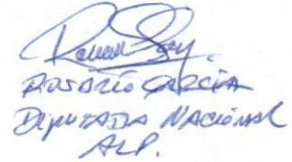 ROSARIO GARCIA
Diputada Nacional
ALP.